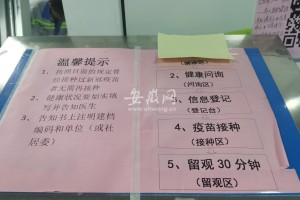 温馨提示
1、按照目前的规定曾
经接种过新冠疫苗
者无需再接种
2、健康状况要如实填
写并告知医生
3、告知书上注明建档
编码和单位（或社
居委）
2、健康问询
（问询区）
3、信息登记
（登记台）
4、疫苗接种
（接种区）
5、留观 30 分钟
（留观区）
安徽网